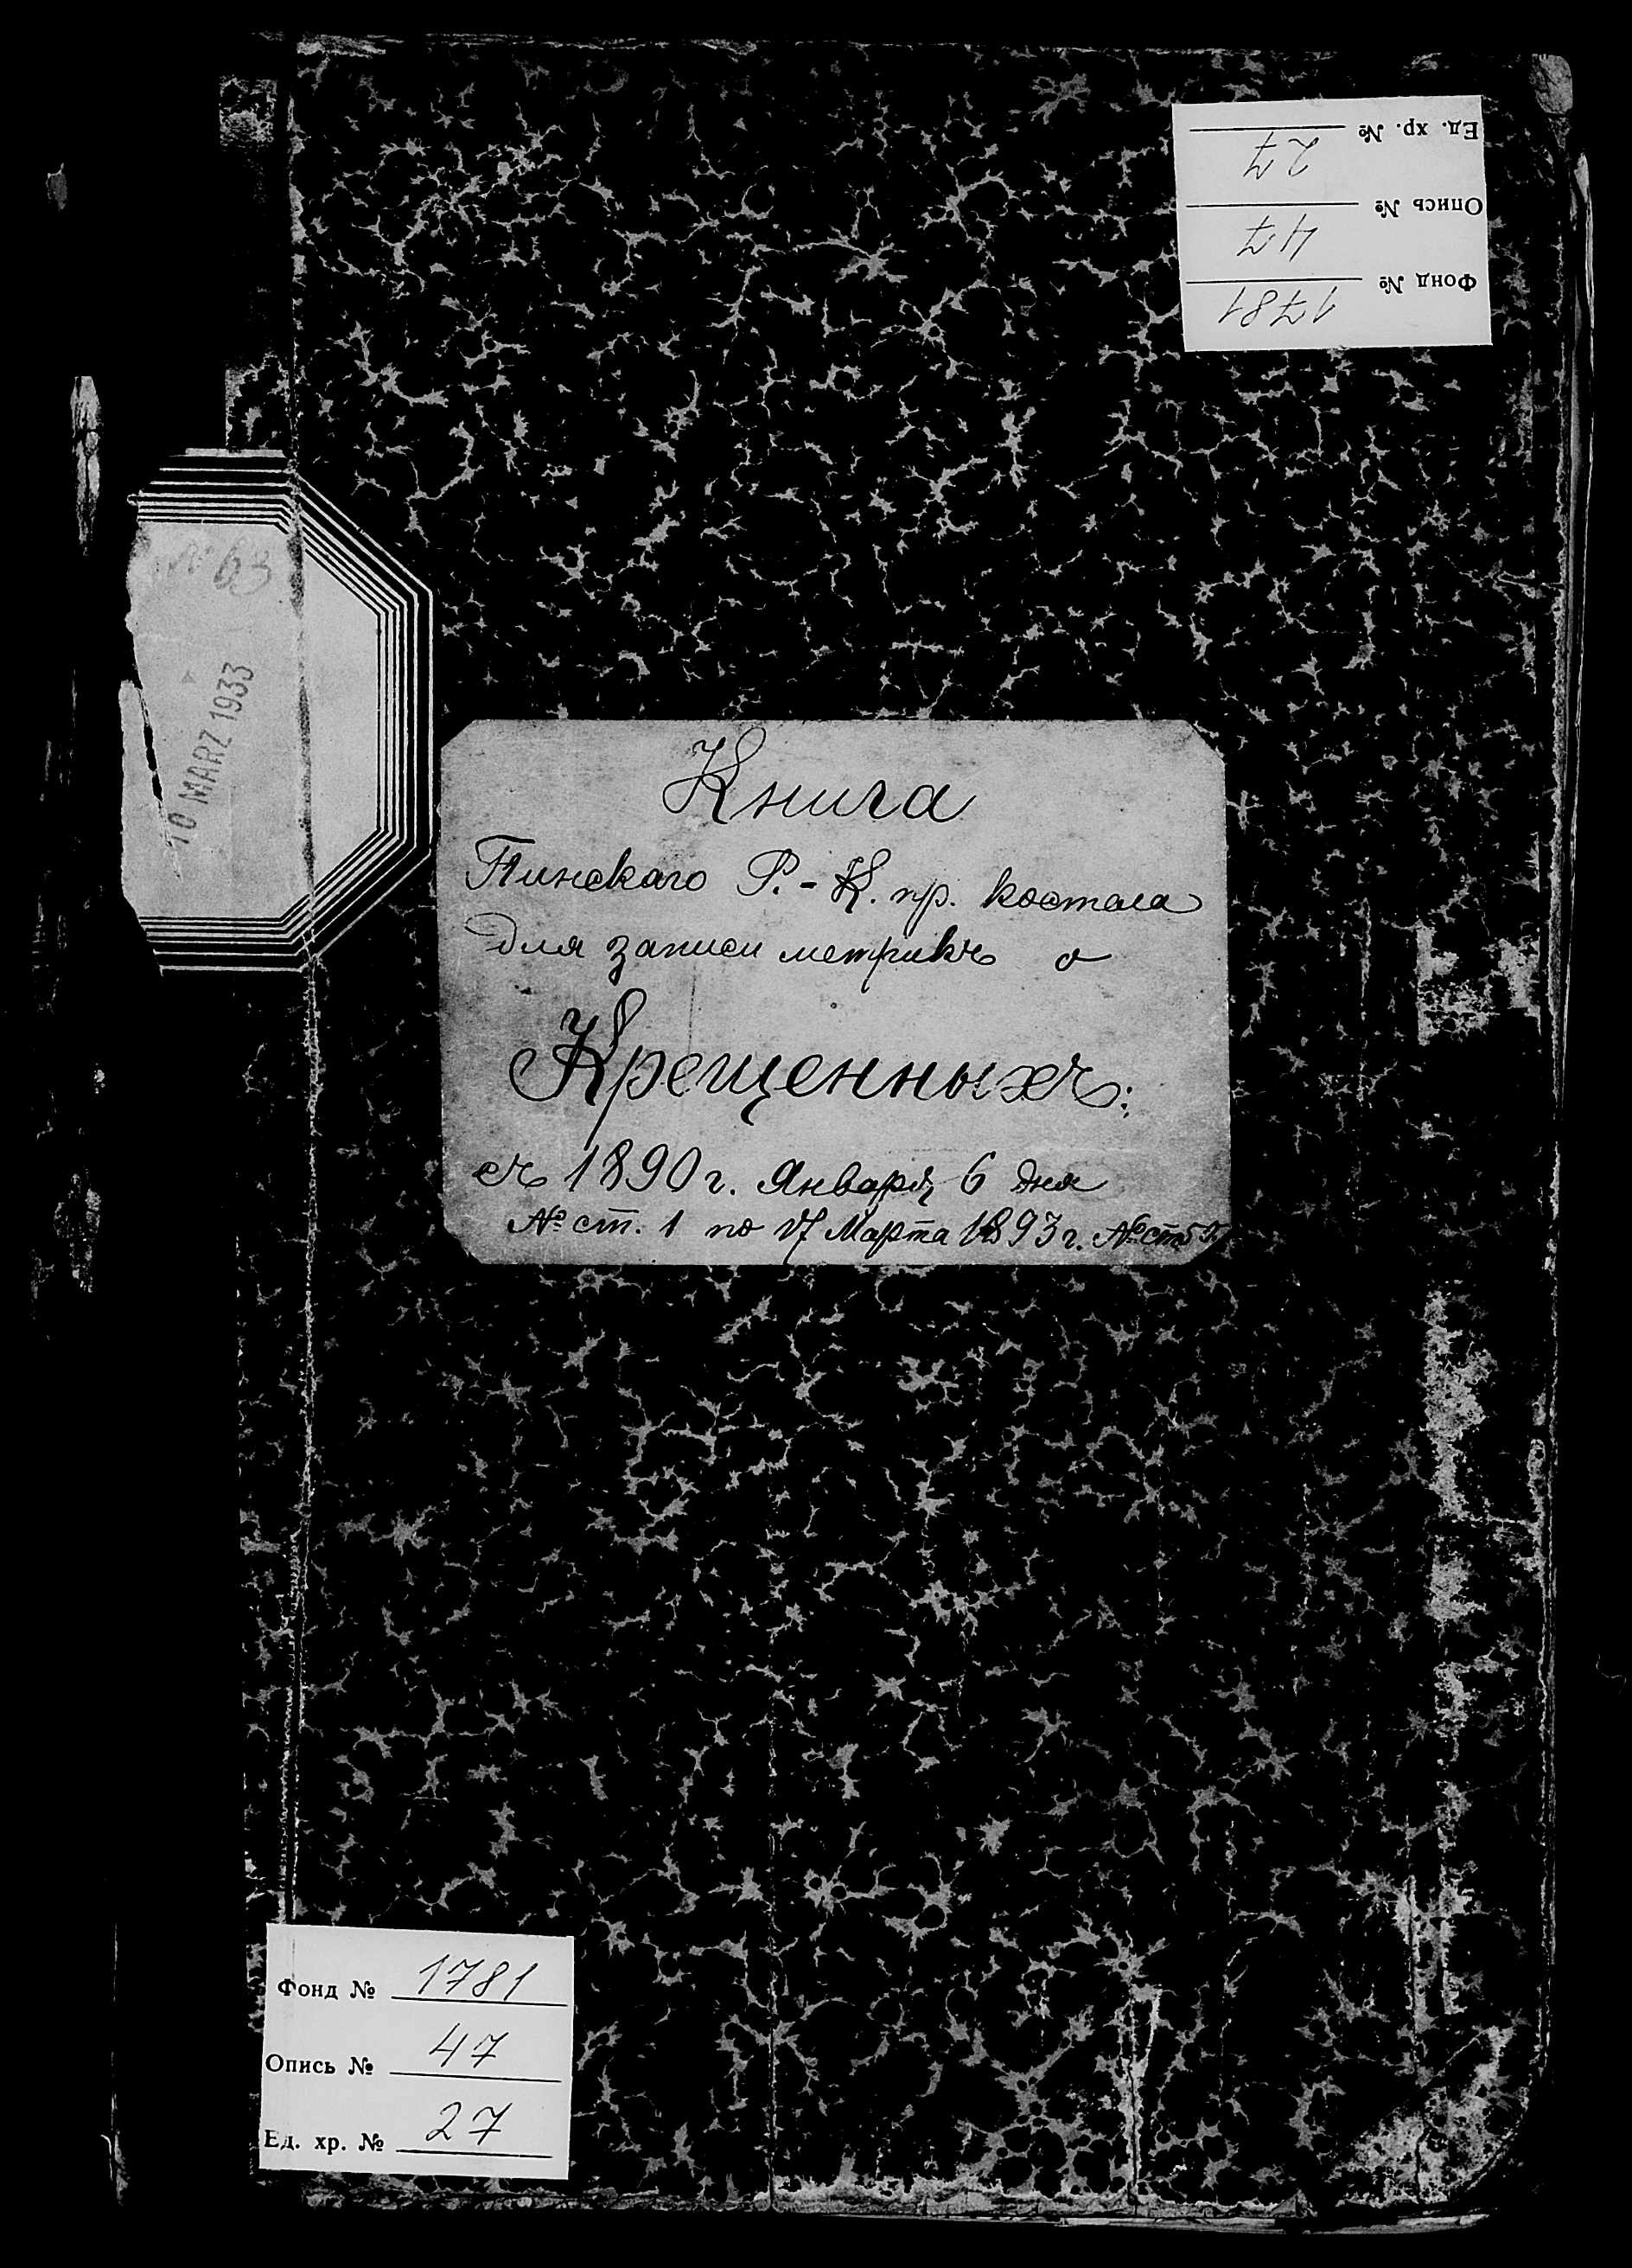 Ед. хр. № 27
Опись № 47
Фонд № 1781
№ 63
10 MARZ 1933
Книга
Пинскаго Р.-К. пр. костела
для записи метрикъ о
Крещенныхъ:
съ 1890 г. Января 6 дня
№ ст. 1 по 17 Марта 1893 г. № ст.
Фонд № 1781
Опись № 47
Ед. хр. № 27